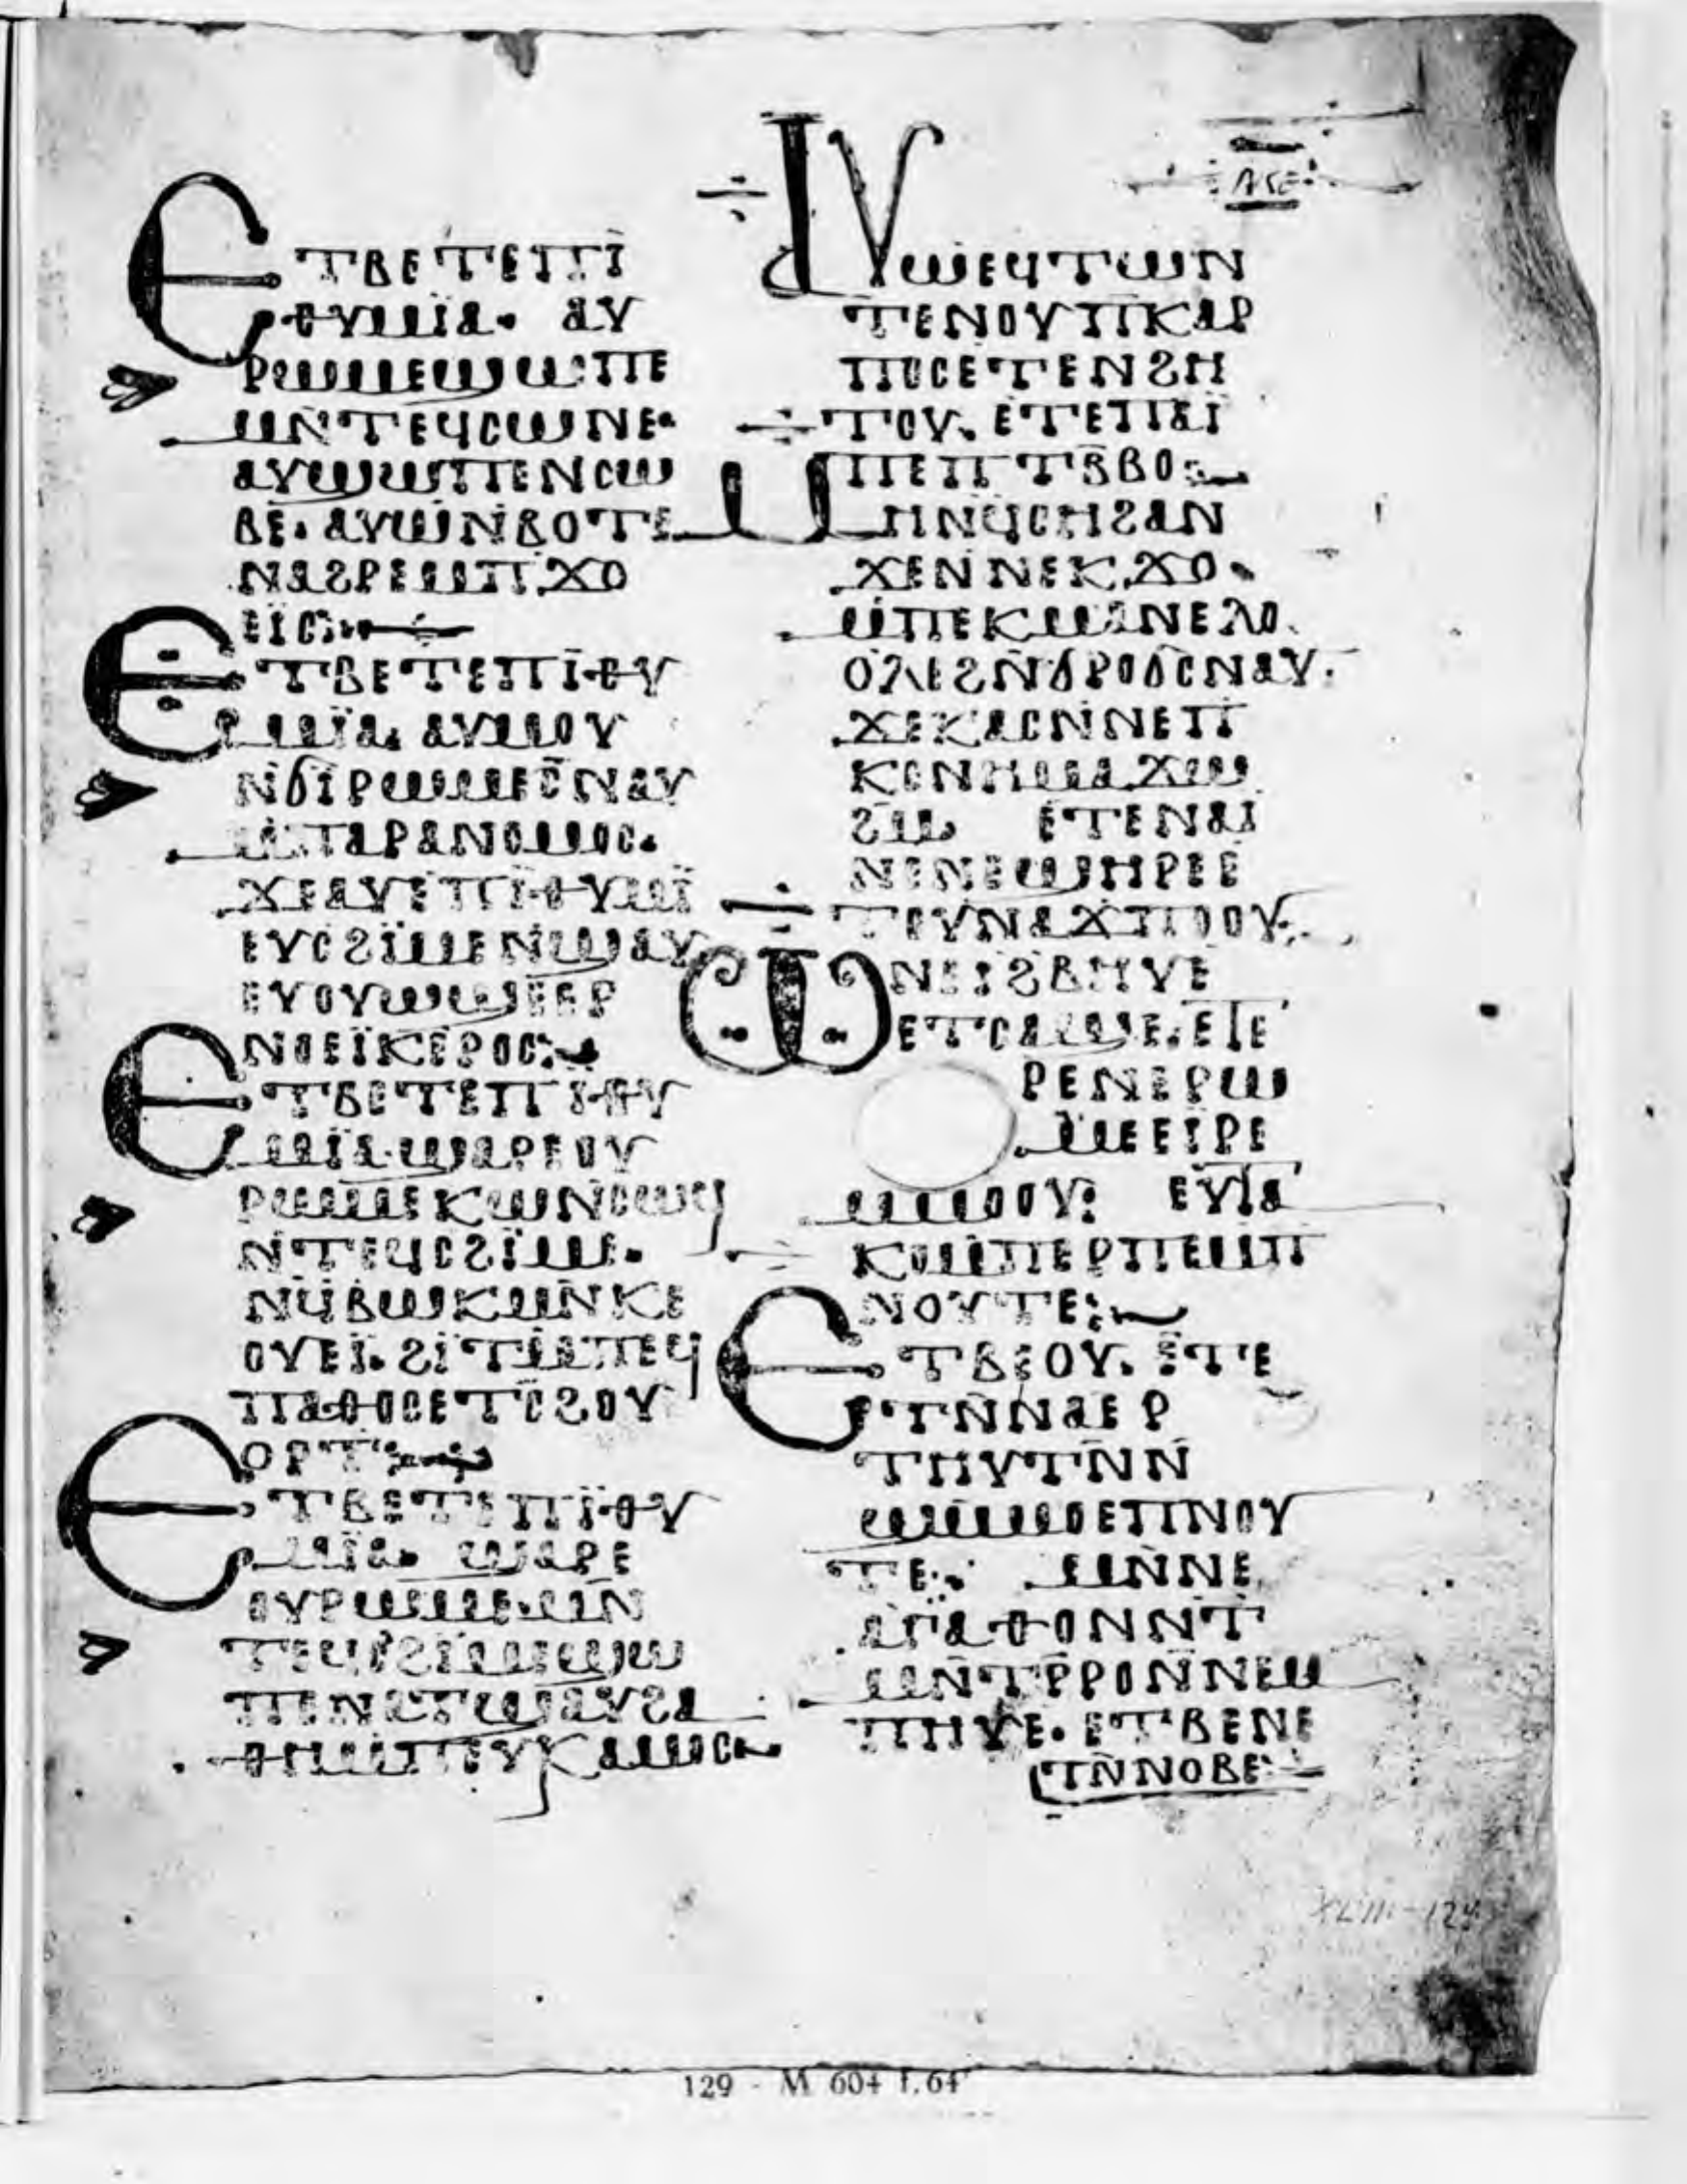 ⲣⲕⲉ
ⲉⲧⲃⲉⲧⲉⲡⲓ
ⲑⲩⲙⲓⲁ· ⲁⲩ
ⲣⲱⲙⲉϣⲱⲡⲉ
ⲙⲛ̄ⲧⲉϥⲥⲱⲛⲉ·
ⲁⲩϣⲱⲡⲉⲛⲥⲱ
ⲃⲉ· ⲁⲩⲱⲛ̄ⲃⲟⲧⲉ
ⲛⲁϩⲣⲉⲙⲡϫⲟ
ⲉⲓⲥ:
ⲉⲧⲃⲉⲧⲉⲡⲓⲑⲩ
ⲙⲓⲁ· ⲁⲩⲙⲟⲩ
ⲛ̄ϭⲓⲣⲱⲙⲉⲥⲛⲁⲩ
ⲙ̄ⲡⲁⲣⲁⲛⲟⲙⲟⲥ·
ϫⲉⲁⲩⲉⲡⲓⲑⲩⲙⲓ
ⲉⲩⲥϩⲓⲙⲉⲛ̄ϣⲁⲩ
ⲉⲩⲟⲩⲱϣⲉⲉⲣ
ⲛⲟⲉⲓⲕⲉⲣⲟⲥ:
ⲉⲧⲃⲉⲧⲉⲡⲓⲑⲩ
ⲙⲓⲁ·ϣⲁⲣⲉⲟⲩ
ⲣⲱⲙⲉⲕⲱⲛ̄ⲥⲱϥ
ⲛ̄ⲧⲉϥⲥϩⲓⲙⲉ·
ⲛϥ̄ⲃⲱⲕⲙⲛ̄ⲕⲉ
ⲟⲩⲉⲓ· ϩⲓⲧⲙ̄ⲡⲉϥ
ⲡⲁⲑⲟⲥⲉⲧⲥϩⲟⲩ
ⲟⲣⲧ:
ⲉⲧⲃⲉⲧⲉⲡⲓⲑⲩ
ⲙⲓⲁ· ϣⲁⲣⲉ
ⲟⲩⲣⲱⲙⲉ·ⲙⲛ̄
ⲧⲉϥⲥϩⲓⲙⲉϣⲱ
ⲡⲉⲛⲁⲧϣⲁⲩϩⲁ
ⲑⲏⲙ̄ⲡⲩⲕⲁⲙⲟⲥ
ⲁⲩⲱⲉϥⲧⲱⲛ
ⲧⲉⲛⲟⲩⲡⲕⲁⲣ
ⲡⲟⲥⲉⲧⲉⲛϩⲏ
ⲧⲟⲩ· ⲉⲧⲉⲡⲁⲓ
ⲡⲉⲡⲧⲃ̄ⲃⲟ:
ⲙⲏⲛϥ̄ⲥⲏϩⲁⲛ
ϫⲉⲛⲛⲉⲕϫⲟ·
ⲙ̄ⲡⲉⲕⲙⲁⲛⲉⲗⲟ
ⲟⲗⲉϩⲛ̄ϭⲣⲟϭⲥⲛⲁⲩ·
ϫⲉⲕⲁⲥⲛ̄ⲛⲉⲡ
ⲕⲟⲛⲏⲙⲁϫⲱ
ϩⲙ̄ ⲉⲧⲉⲛⲁⲓ
ⲛⲉⲛⲉϣⲏⲣⲉⲉ
ⲧⲟⲩⲛⲁϫⲡⲟⲟⲩ·
ⲱⲛⲉⲓϩⲃⲏⲩⲉ
ⲉⲧⲥⲁϣⲉ· ⲉⲧⲉ
ⲣⲉⲛⲉⲣⲱ
ⲙⲉⲉⲓⲣⲉ
ⲙⲙⲟⲟⲩ: ⲉⲩⲧⲁ
ⲕⲟⲙ̄ⲡⲉⲣⲡⲉⲙⲡ
ⲛⲟⲩⲧⲉ:
ⲉⲧⲃⲉⲟⲩ· ⲉⲧⲉ
ⲧⲛ̄ⲛⲁⲉⲣ
ⲧⲏⲩⲧⲛ̄ⲛ̄
ϣⲙ̄ⲙⲟⲉⲡⲛⲟⲩ
ⲧⲉ· ⲙⲛ̄ⲛⲉ
ⲁⲅⲁⲑⲟⲛⲛ̄ⲧ
ⲙⲛ̄ⲧⲣ̄ⲣⲟⲛ̄ⲛⲉⲙ
ⲡⲏⲩⲉ· ⲉⲧⲃⲉⲛⲉ
ⲧⲛ̄ⲛⲟⲃⲉ
XLIII-124
129 - M 604 f.64ʳ